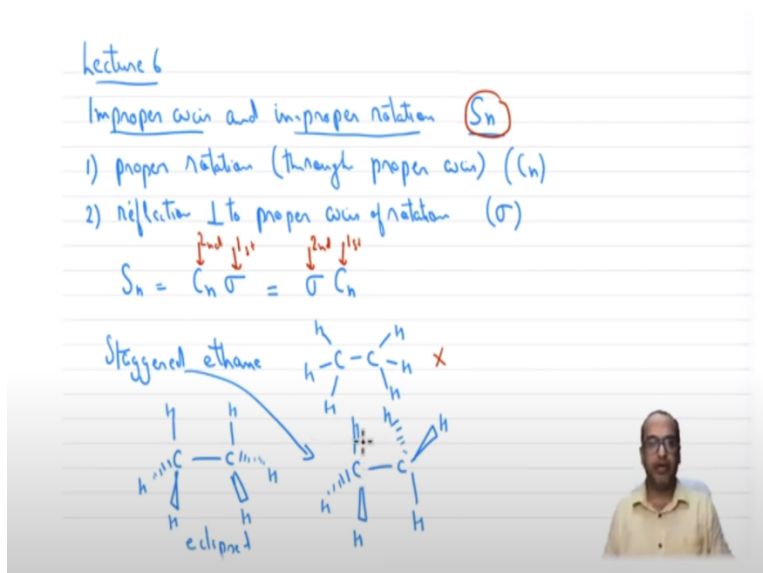 Lecture 6
Improper axis and improper rotation Sn
1) proper rotation (through proper axis) (Cn)
2) reflection ⊥ to proper axis of rotation (σ)
2nd 1st 2nd 1st
Sn = Cn σ = σ Cn
Staggered ethane
H H
H - C - C - H ×
H H
H H H H
C — C C — C
H H H
H H H H
eclipsed